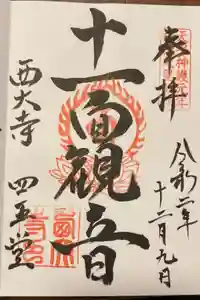 奉拝
令和二年
十二月九日
十一面観音
西大寺 四王堂